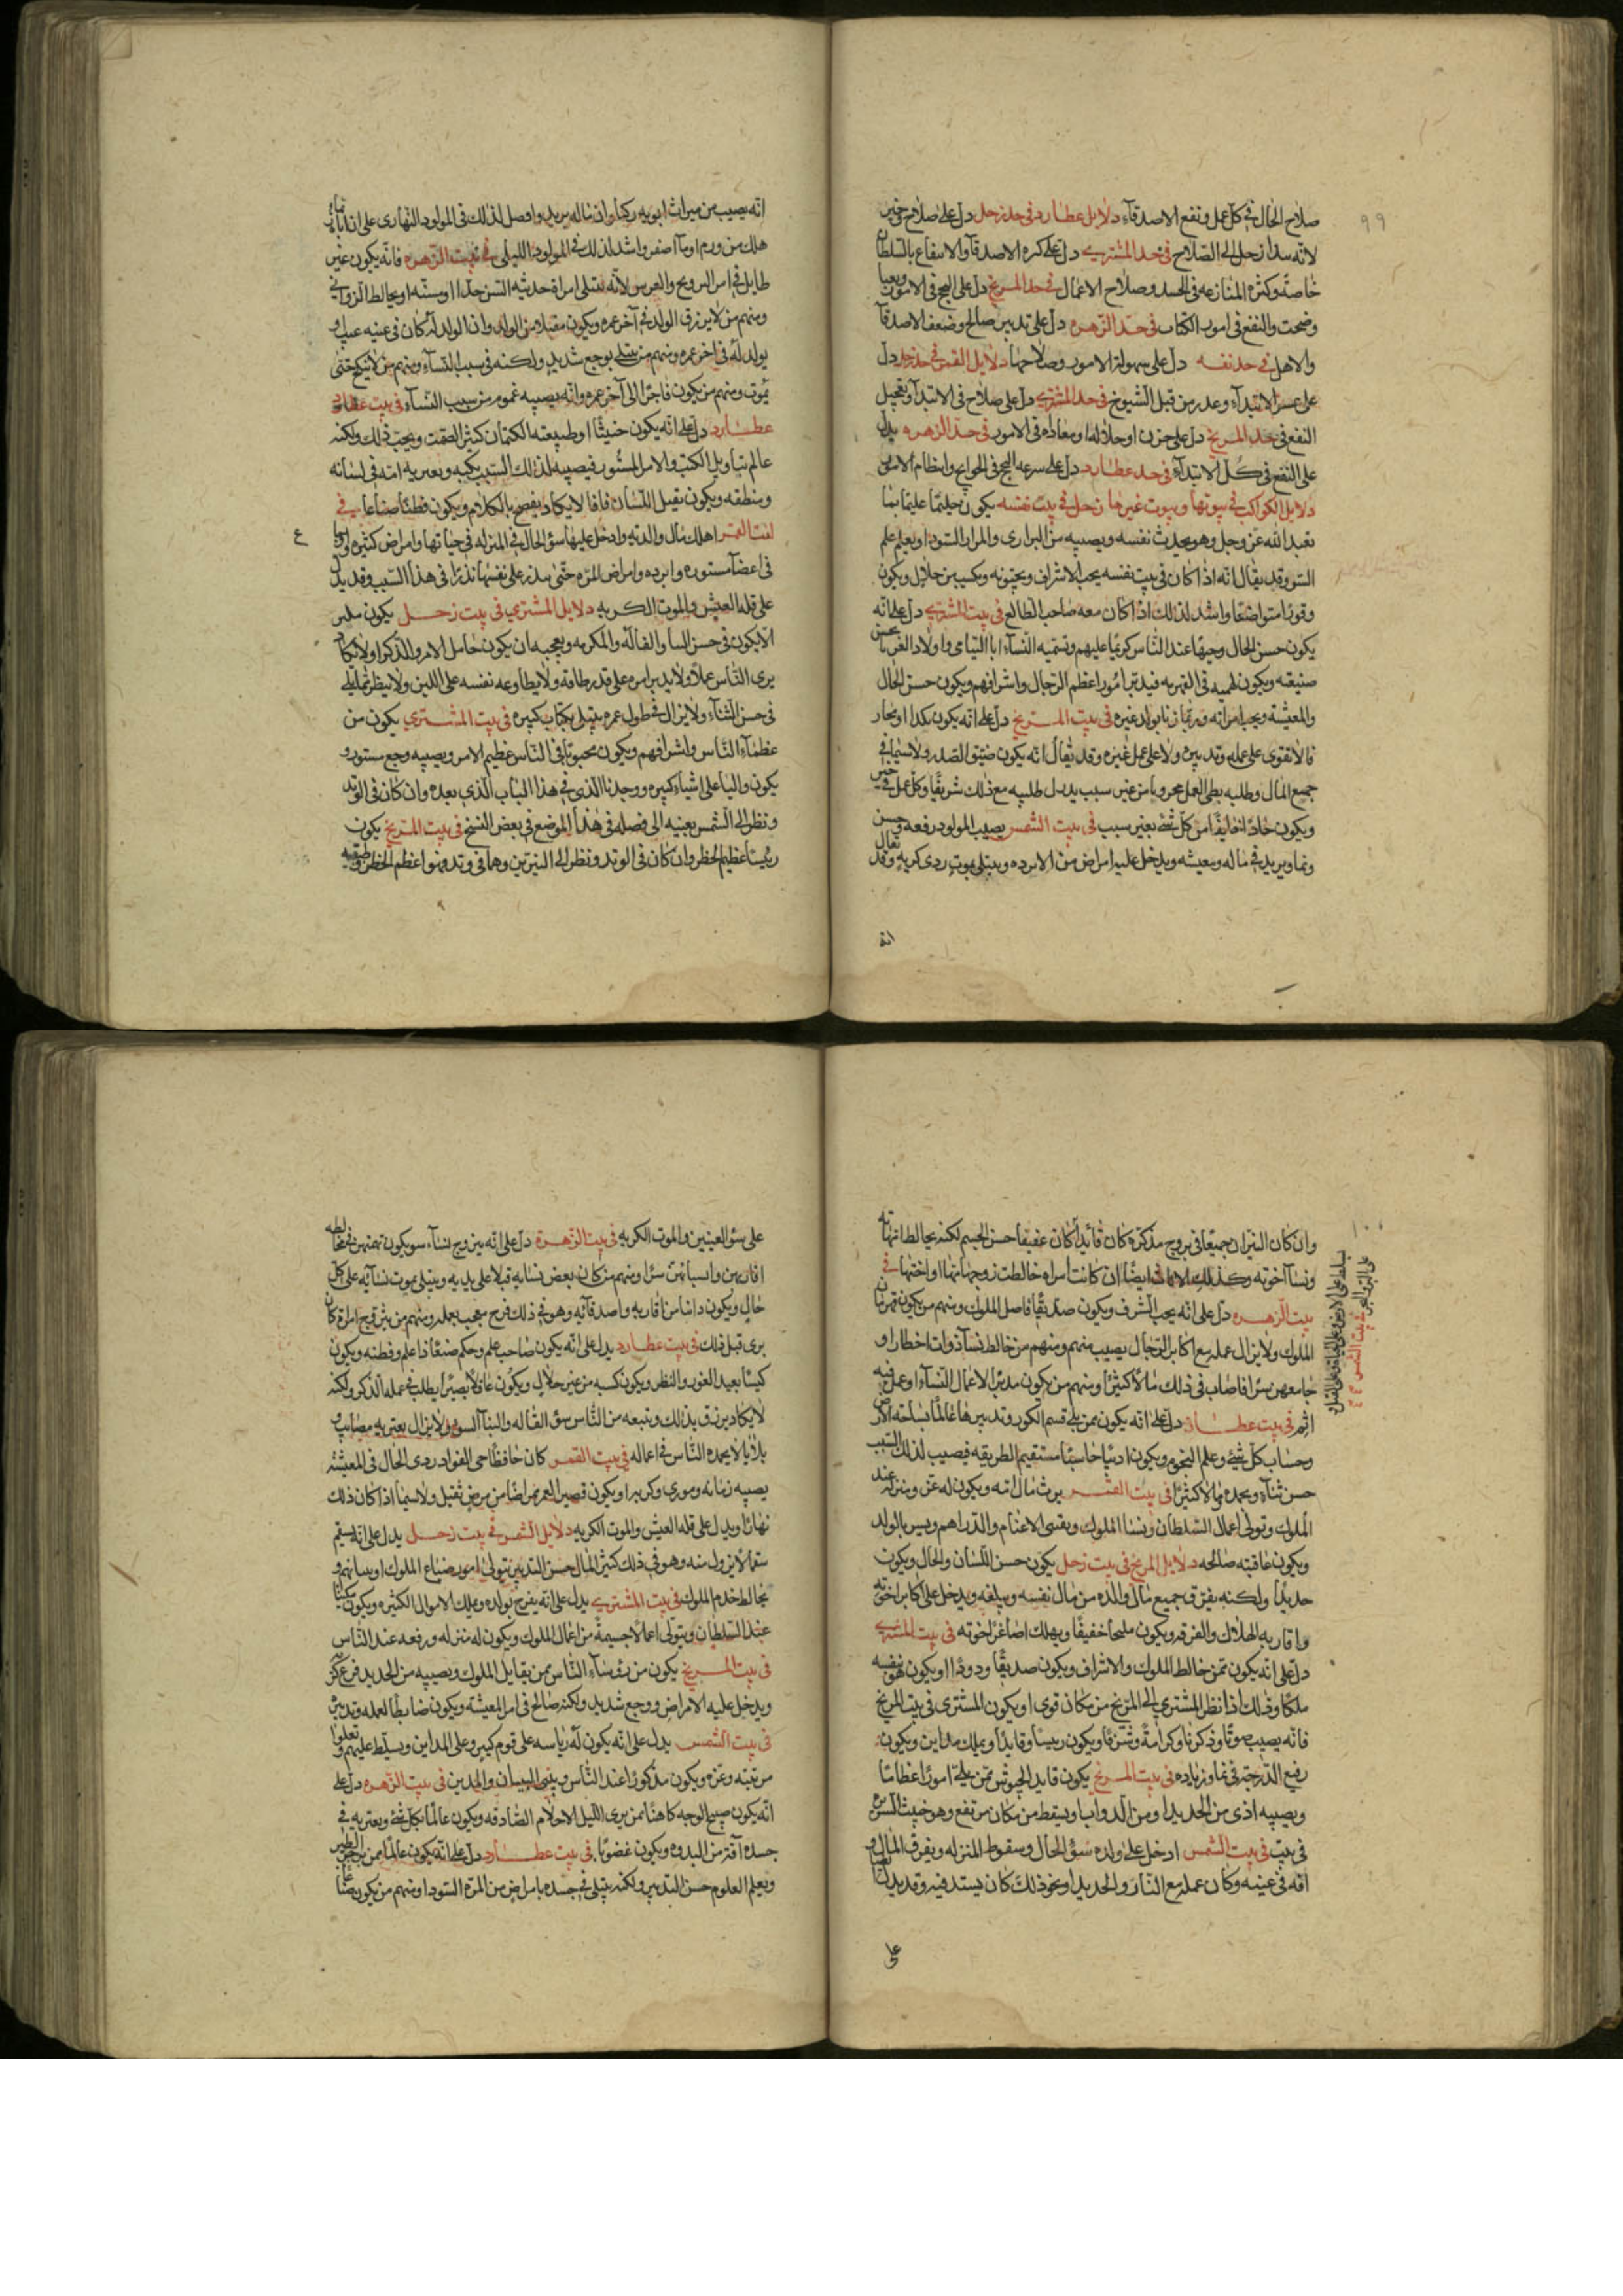 ٩٩
صلاح الحال في كل عمل ونفع الاصدقآء دلايل عطارد في حد زحل دل على صلاح وخير
لانه زحل الى الصلاح في حد المشترى دل على كثره الاصدقآ والانتفاع بالسلطان
خاصة وكثرة المنازعه في الحسد وصلاح الاعمال في حد المريخ دل على النجح في الامور
وضحت والنفع في امور الكتاب في حد الزهره دل على تدبير صالح وضعف الاصدقآ
والاهل في حد نفسه دل على سهولة الامور وصلاحها دلايل القمر في حد زحل دل
على عسر الابتدآء وعدر من قبل الشيوخ في حد المشترى دل على صلاح في الابتدآ وتعجيل
النفع في حد المريخ دل على حزن او جلاله او معاداه في الامور في حد الزهره يدل
على النفع في كل الابتدآء في حد عطارد دل على سرعه النجح في الحوايج وانتظام الامور
دلايل الكواكب في بيوتها وبيوت غيرها زحل في بيت نفسه يكون حليما عليما
بعبد الله عز وجل وهو يحدث نفسه ويصيبه من البرارى والمرار السودا ويعلم علم
السر وقد يقال انه اذا كان في بيت نفسه يحب الاشراف ويحبونه ويكسب من حلال ويكون
وقورا متواضعا واشد لذلك اذا كان معه صاحب الطالع في بيت المشترى دل على انه
يكون حسن الحال وجيها عند الناس كريما عليهم وتسميه النسآء ابا اليتامى واولاد الغربا يحسن
صنيعه ويكون فيدبر امور اعظم الرجال واشرافهم ويكون حسن الحال
والمعيشة ويحب امراته وربما زنا بولد غيره في بيت المريخ دل على انه يكون بكدا او نجار
فالا يقوى على عمله وتدبيره ولا على عمل غيره وقد يقال انه يكون ضيق الصدر ولا سيما في
جميع المال وطلبه بطى العمل محروبا من غير سبب يدل طلبه مع ذلك شريفا وكل عمل في خير
ويكون حاذ اخايفا من كل شئ بغير سبب في بيت الشمس يصيب المولود رفعه وحسن
ونما ويزيد في ماله ومعيشه ويدخل عليه امراض من الابرده ويبتلى بموت ردى كريه وقد يقال
انه
انه يصيب من ميراث ابويه ركنا وان ماله يزيد وافضل لذلك في المولود النهارى على ان اباه
هلك من ورم او مآ اصفر واشد لذلك في المولود الليلى في بيت الزهره فانه يكون غير
طايل في امر التزويج والعرس لانه يبتلى امراة حديثه السن جدا او مسنه او يخالط الزوانى
ومنهم من لا يرزق الولد في آخر عمره ويكون مقيلا من الولد وان الولد له كان في عينه عيب و
يولد له في اخر عمره ومنهم من يبتلى بوجع شديد ولكنه في سبب النسآء ومنهم من لا ينكح حتى
يموت ومنهم من يكون فاجرا الى آخر عمره وانه يصيبه غموم من سبب النسآء في بيت عطارد
عطارد دل على انه يكون خبيثا او طبيعته الكتمان كثير الصمت ويحب ذلك ولكنه
عالم بتاويل الكتب والامر المستور فيصيبه لذلك السبب ويعتريه امته في لسانه
ومنطقه ويكون ثقيل اللسان فافا لا يكاد يفصح بالكلام ويكون فطنا صناعا في
بيت القمر اهلك مال والدته وادخل عليها سؤ الحال في المنزله في حياتها وامراض كثيره
في اعضآ مستوره وابرده وامراض المره حتى نذرا في هذا السبب وقد يدل
على قله العيش والموت الكريه دلايل المشتري في بيت زحل يكون ملبر
الا يكون في حسن السا والفاله والمكرمه ويعجبه ان يكون خامل الامر والذكر او لا يكاد
يرى الناس عملا ولا يدبر امره على قدر طاقه ولا يطاوعه نفسه على اللين ولا ينظر بما يلى
في حسن الثنآء ولا يزال في طول عمره يبتلى كبيره في بيت المشترى يكون من
عظمآء الناس واشرافهم ويكون محبوبا في الناس عظيم الامر ويصيبه وجع مستور و
يكون واليا على اشياء كبيره ووجدنا الذى في هذا الباب الذي بعده وان كان في الوتد
ونظر الى الشمس بعينه الى فصله في هذا الموضع في بعض النسخ في بيت المريخ يكون
رئيسا عظيم الحظ وان كان في الوتد ونظر الى النيرين وهما في وتد فهو اعظم الحظ
١٠٠
وان كان النيران جميعا في بروج مذكره كان قائدا كان عفيفا حسن الجسم لكنه يخالط
ونسآ اخوته وكذلك ايضا ان كانت امراه خالطت زوج او اختها في
بيت الزهره دل على انه يحب الشرف ويكون صديقا فاصل الملوك ومنهم من يكون قهرمان
الملوك ولا يزال عمله مع اكابر الرجال يصيب منهم ومنهم من خالط نسآ ذوات اخطار و
جامعهن سرا فاصاب في ذلك مالا كثيرا ومنهم من يكون مدبرا لاعمال النسآء او عمل فيه
اثم في بيت عطارد دل على انه يكون ممن يلى قسم الكور وتدبيرها عالما بمساحة الارض
وحساب كل شئ وعلم النجوم ويكون اديبا حاسبا مستقيم الطريقه فيصيب لذلك السبب
حسن ثنآء ويحمده مالا كثيرا في بيت القمر يرث مال امه ويكون له عز ومنزله عند
الملوك وتولى اعمال السلطان ونسا الملوك ويقتنى الاغنام والدراهم ويسر بالولد
ويكون عاقبته صالحه دلايل المريخ في بيت زحل يكون حسن اللسان والحال ويكون
حديدا ولكنه يفرق جميع مال والده من مال نفسه ويبلغه ويدخل على اكابر اخوته
واقاربه الهلاك والفرقه ويكون مليحا خفيفا ويهلك اصاغر اخوته في بيت المشترى
دل على انه يكون ممن خالط الملوك والاشراف ويكون صديقا ودودا او يكون هو نفسه
ملكا وذلك اذا نظر المشترى الى المريخ من مكان قوى او يكون المشترى في بيت المريخ
فانه يصيب صوتا وذكرا وكرامة وشرفا ويكون رييسا وقايدا ويملك مداين ويكون
رفيع الدرجة في نما وزياده في بيت المريخ يكون قايد الجيوش ممن يلى امورا عظاما
ويصيبه اذى من الحديد او من الدواب او يسقط من مكان مرتفع وهو خبيث السريره
في بيت في بيت الشمس ادخل على ولده سؤ الحال وسقوط المنزله ويفرق المال و
افه في عينه وكان عمله مع النار والحديد او نحو ذلك كان يستد فيه وقد يدل
في بيت الشمس
على
على سؤ العينين والموت الكريه في بيت الزهره دل على انه يتزوج نسآء سو يكون
اقاربهن وانسبائهن سرا ومنهم من كان بعض نسايه قبلا على يديه ويبتلى بموت نسآيه على كل
حال ويكون دانسا من اقاربه واصدقآيه وهو في ذلك فرح معجب بعمله ومنهم من يتزوج امراة كان
يرى قبل ذلك في بيت عطارد يدل على انه يكون صاحب علم وحكم صنعا ذا علم وفطنه ويكون
كيسا بعيد الغور والنظر ويكون كسبه من غير حلال ويكون عاقلا بصيرا يطلب في عمله الذكر ولكنه
لا يكاد يرزق بذلك ويتبعه من الناس سؤ القاله والثنآ السو ولا يزال يعتريه مصايب و
بلايا لا يحمده الناس في اعماله في بيت القمر كان حافظا حى الفواد ردى الحال في المعيشه
يصيبه زمانه او يكون قصير العمر ممراضا من مرض ثقيل ولا سيما اذا كان ذلك
نهارا ويدل على قله العيش والموت الكريه دلايل الشمس في بيت زحل يدل على انه يسقم
سقما لا يزول منه وهو في ذلك كثير المال حسن التدبير يتولى امور ضياع الملوك او بساتينهم و
يخالط خدم الملوك في بيت المشترى يدل على انه يفرح بولده ويملك الاموال الكثيره ويكون مكينا
عند السلطان ويتولى اعمالا جسيمة من اعمال الملوك ويكون له منزله ورفعه عند الناس
في بيت المريخ يكون من رؤساء الناس ممن يقابل الملوك ويصيبه من الحديد فزع
ويدخل عليه الامراض ووجع شديد ولكنه صالح في امر المعيشه ويكون ضابطا لعمله وتدبيره
في بيت الشمس يدل على انه يكون له رياسه على قوم كبير وعلى المداين ويسلط عليهم وتعلوا
مرتبته وعزه ويكون مذكورا عند الناس ويبنى البنيان والمدن في بيت الزهره دل على
انه يكون صبيح الوجه كاهنا ممن يرى الليل الاحلام الصادقه ويكون عالما بكل شئ ويعتريه في
جسده آفه من البدوه ويكون غضوبا في بيت عطارد دل على انه يكون عالما ممن يزجر الطير
ويعلم العلوم حسن التدبير ولكنه يبتلى في جسده بامراض من المرة السودا ومنهم من يكون